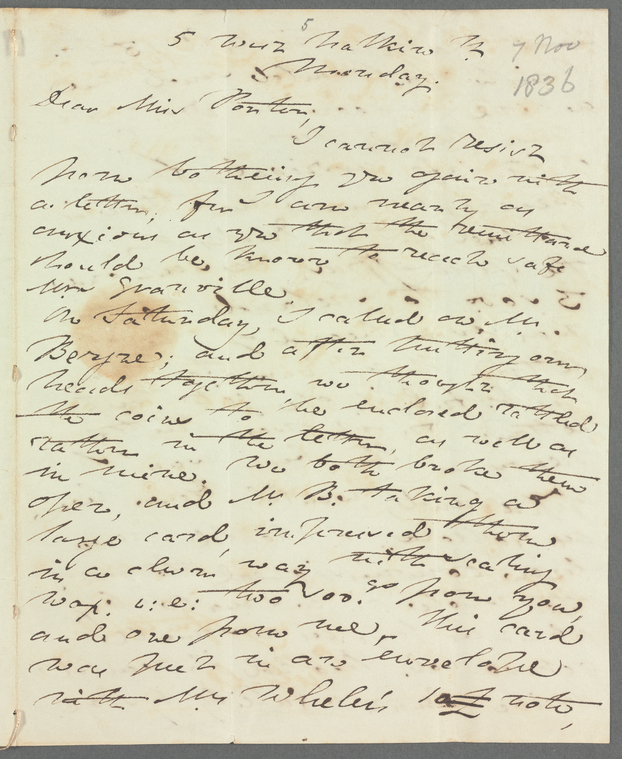 5 West Halkin St
7 Nov
1836
Monday.
Dear Miss Ponton,
I cannot resist
from bothering you again with
a letter, for I am nearly as
anxious as you that the remittance
should be known to reach safe
Mrs Granville.
On Saturday, I called on Mr.
Beryne; and after putting our
heads together, we thought that
the coins to be enclosed rattled
in the letter, as well as
in mine. We both broke them
open, and Mr. B. taking a
large card, infixed them
in a clever way with sealing
wax. i:e: two sovgs from you,
and one from me, this card
was put in an envelope
with Mr Whelen's 1st note,